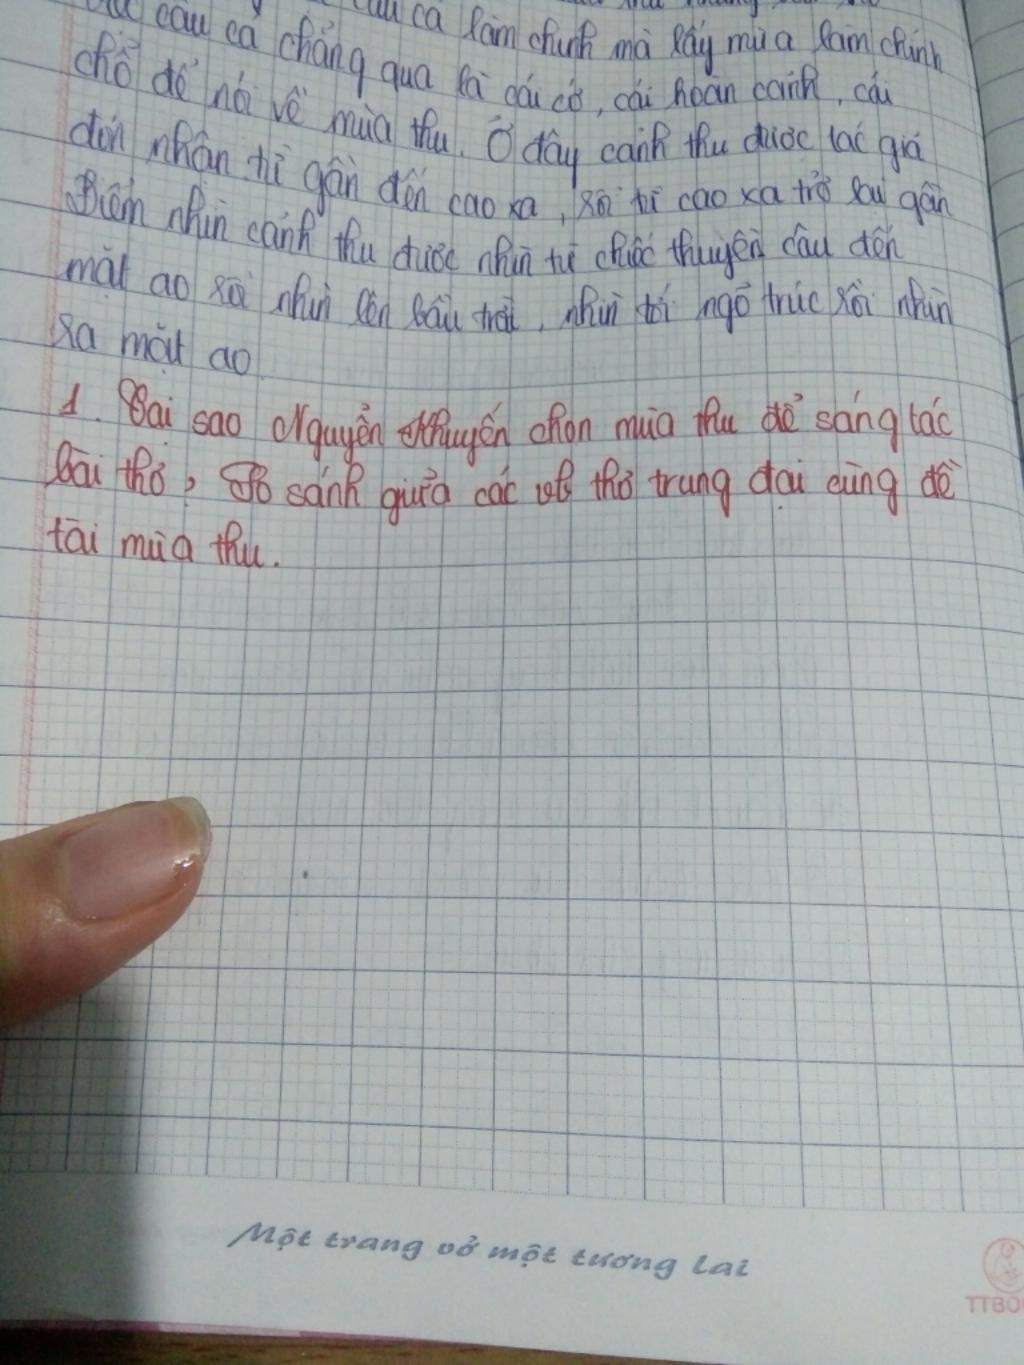 câu cá chẳng qua câu cá làm chính mà lấy mùa làm chính
chỗ để nói về mùa thu. Ở đây cảnh thu được tác giả
là cái cớ, cái hoàn cảnh, cái
đón nhận từ gần đến cao xa, rồi từ cao xa trở lại gần
Điểm nhìn cảnh thu được nhìn từ chiếc thuyền câu đến
mặt ao rồi nhìn lên bầu trời, nhìn tới ngõ trúc rồi nhìn
ra mặt ao
1. Tại sao Nguyễn Khuyến chọn mùa thu để sáng tác
bài thơ, So sánh giữa các vb thơ trung đại cùng đề
tài mùa thu.
Một trang vở một tương lai